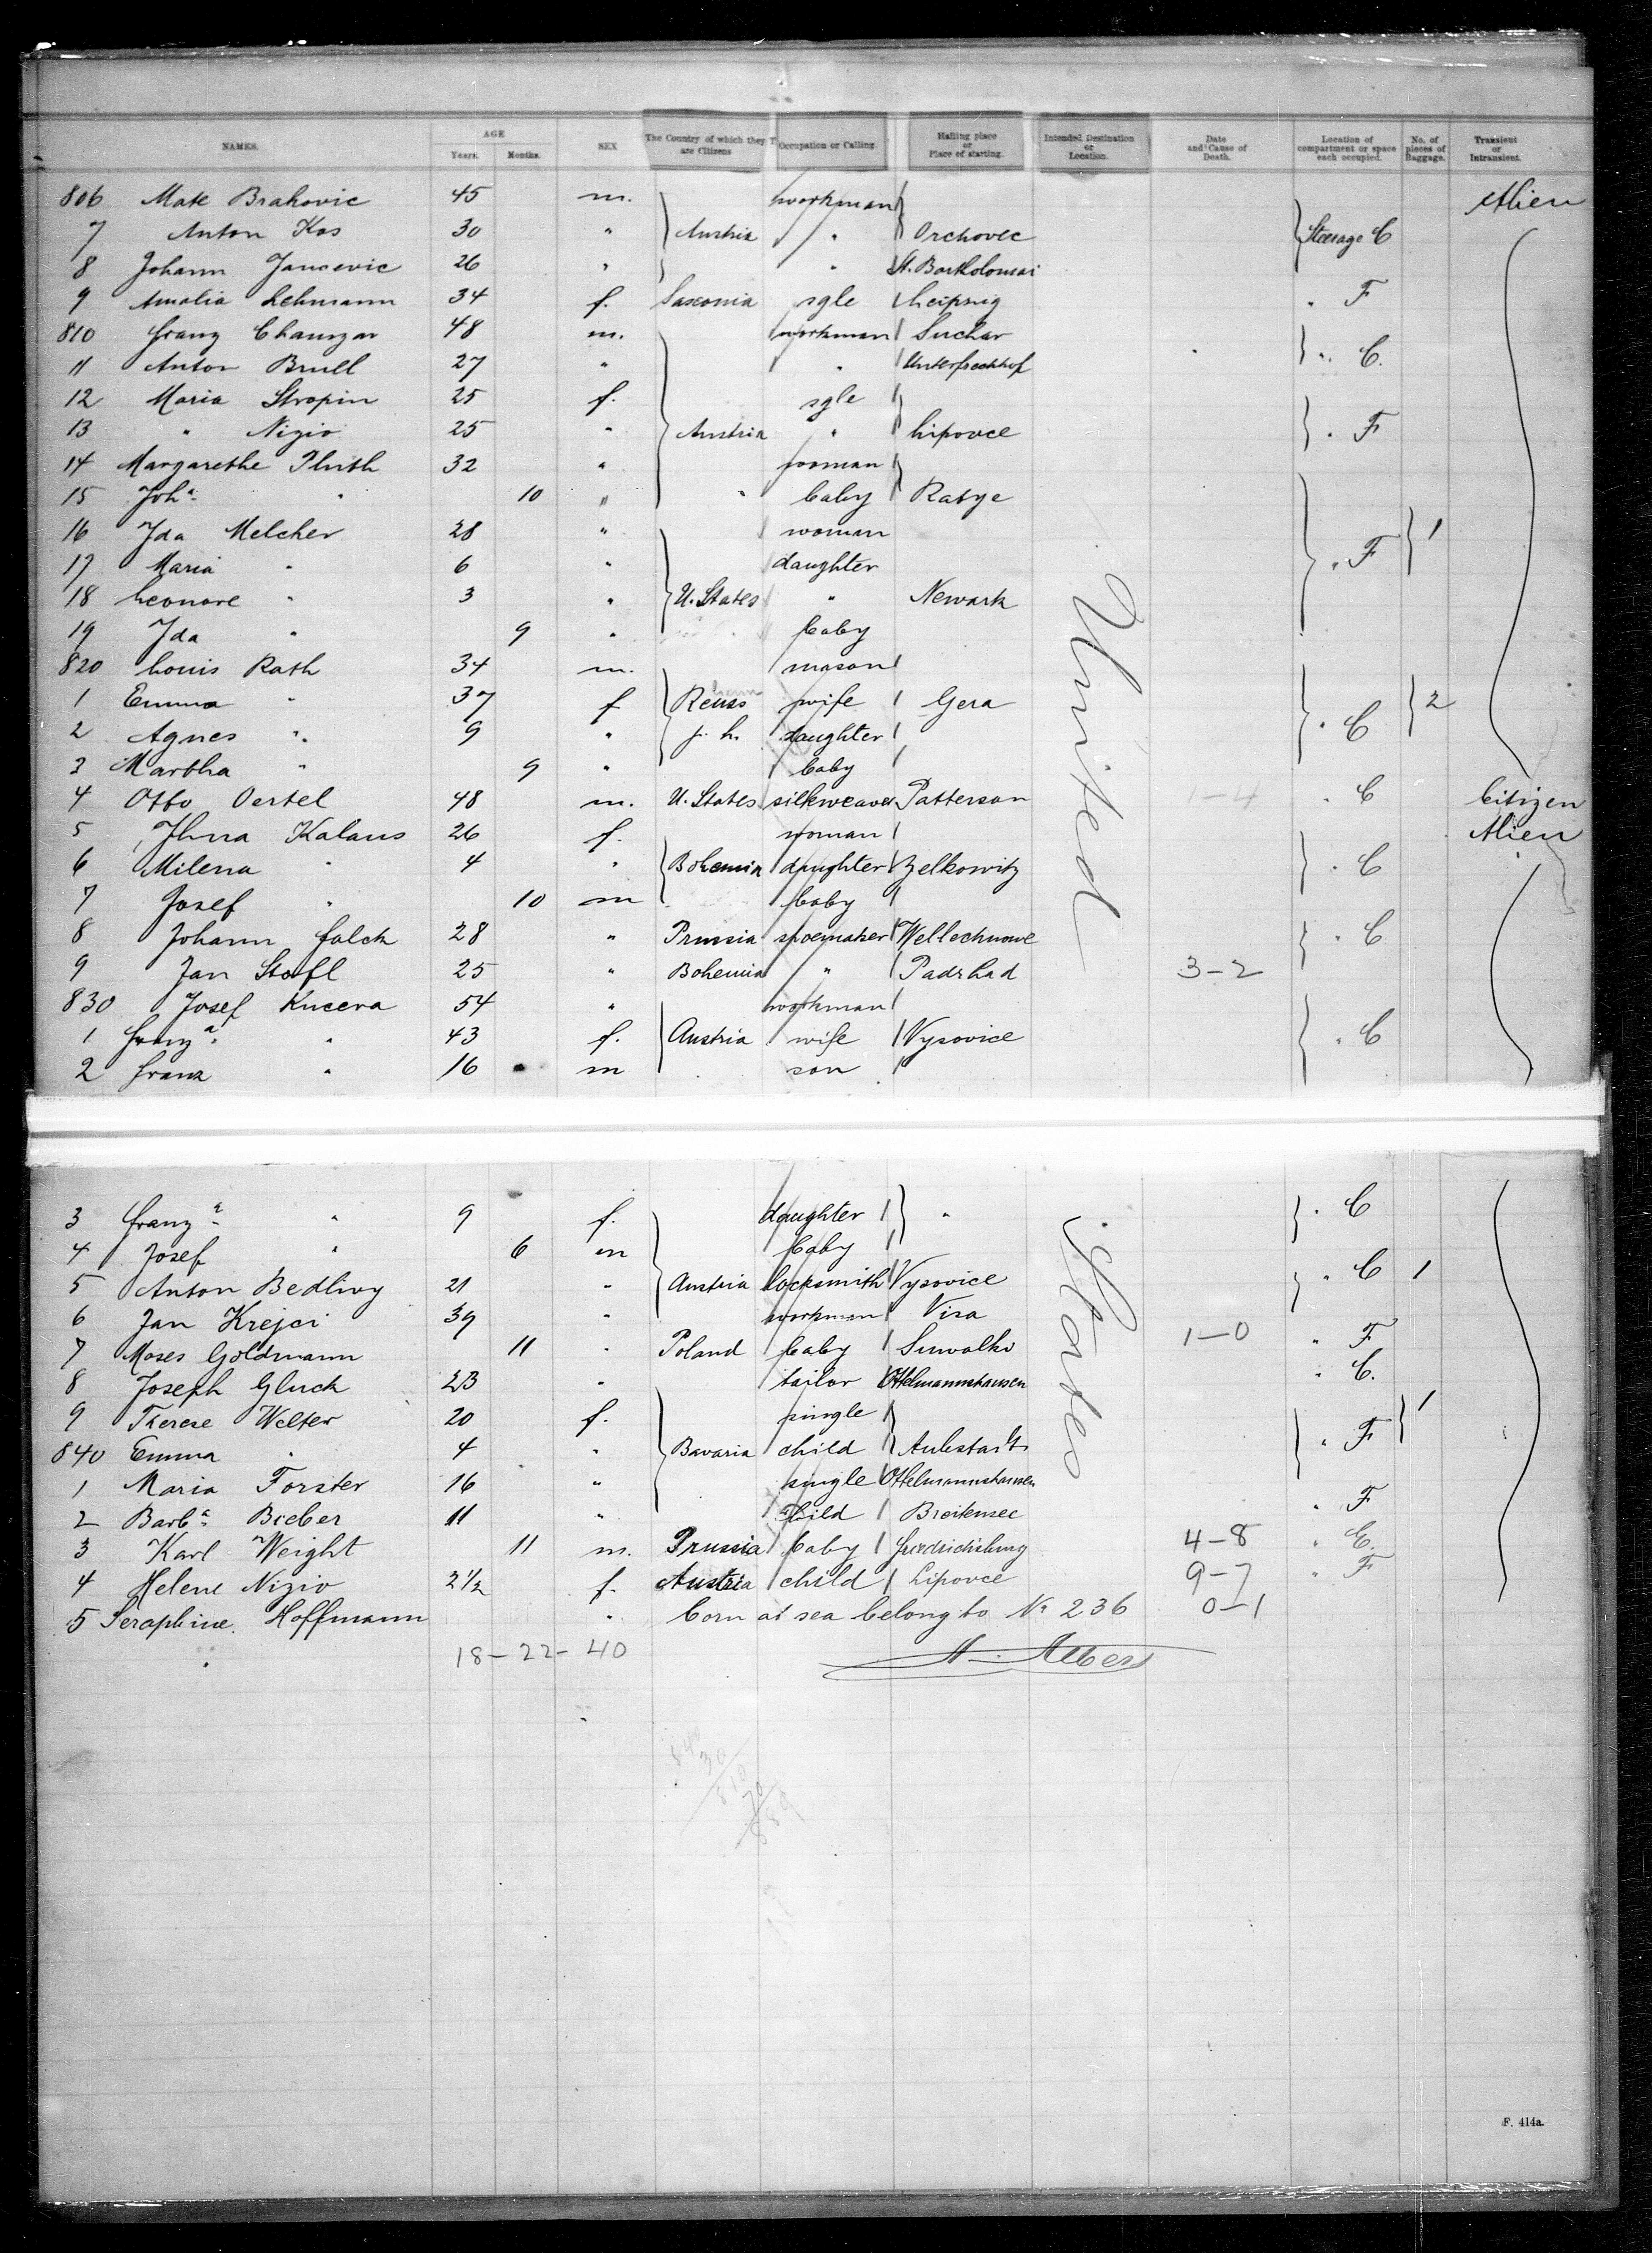 NAMES. AGE Years. Months. SEX The Country of which they are Citizens Occupation or Calling. Hailing place or Place of starting. Intended Destination or Location. Date and Cause of Death. Location of compartment or space each occupied. No. of pieces of Baggage. Transient or Intransient.
806 Mate Brahovic 45 m. workman Alien
7 Anton Kos 30 " Austria " Orchovec Steerage C
8 Johann Jancevic 26 " " St. Bartholomai
9 Amalia Lehmann 34 f. Saxonia sgle Leipzig " F
810 Franz Chamzar 48 m. workman Suchor
11 Anton Brull 27 " " " C.
12 Maria Stropin 25 f. sgle
13 " Nizio 25 " Austria " Lipovce " F
14 Margarethe Pluth 32 " woman
15 Joha " 10 " " baby Ratye
16 Ida Melcher 28 " woman 1
17 Maria " 6 " daughter " F
18 Leonore " 3 " U. States " Newark
19 Ida " 9 " baby
820 Louis Rath 34 m. mason
1 Emma " 37 f Reuss wife Gera 2
2 Agnes " 9 " j. L. daughter " C
3 Martha " 9 " baby
4 Otto Oertel 48 m. U. States silkweaver Patterson 1-4 " C Citizen
5 Kalaus 26 f. woman Alien
6 Milena " 4 " Bohemia daughter Zelkowitz " C
7 Josef " 10 m baby
8 Johann Falck 28 " Prussia shoemaker Wellechnowe " C
9 Jan Stofl 25 " Bohemia " Padrhad 3-2
830 Josef Kucera 54 " workman
1 Franza " 43 f. Austria wife Vysovice " C
2 Franz " 16 m son
United
3 Franza " 9 f. daughter " " C
4 Josef " 6 m baby
5 Anton Bedlivy 21 " Austria locksmith Vysovice " C 1
6 Jan Krejci 39 " workman Visa
7 Moses Goldmann 11 " Poland baby Suwalko 1-0 " F
8 Joseph Gluck 23 " tailor Ottelmannshausen " C.
9 Therese Welter 20 f. single 1
840 Emma " 4 " Bavaria child Aubstadt " F
1 Maria Forster 16 " single Ottelmannshausen
2 Barba Bieber 11 " child Breitensee " F
3 Karl Weight 11 m. Prussia baby 4-8 " C.
4 Helene Nizio 2 1/2 f. Austria child Lipovce 9-7 " F
5 Seraphine Hoffmann " born at sea belong to No 236 0-1
States
18-22-40
A. Albers
F. 414a.